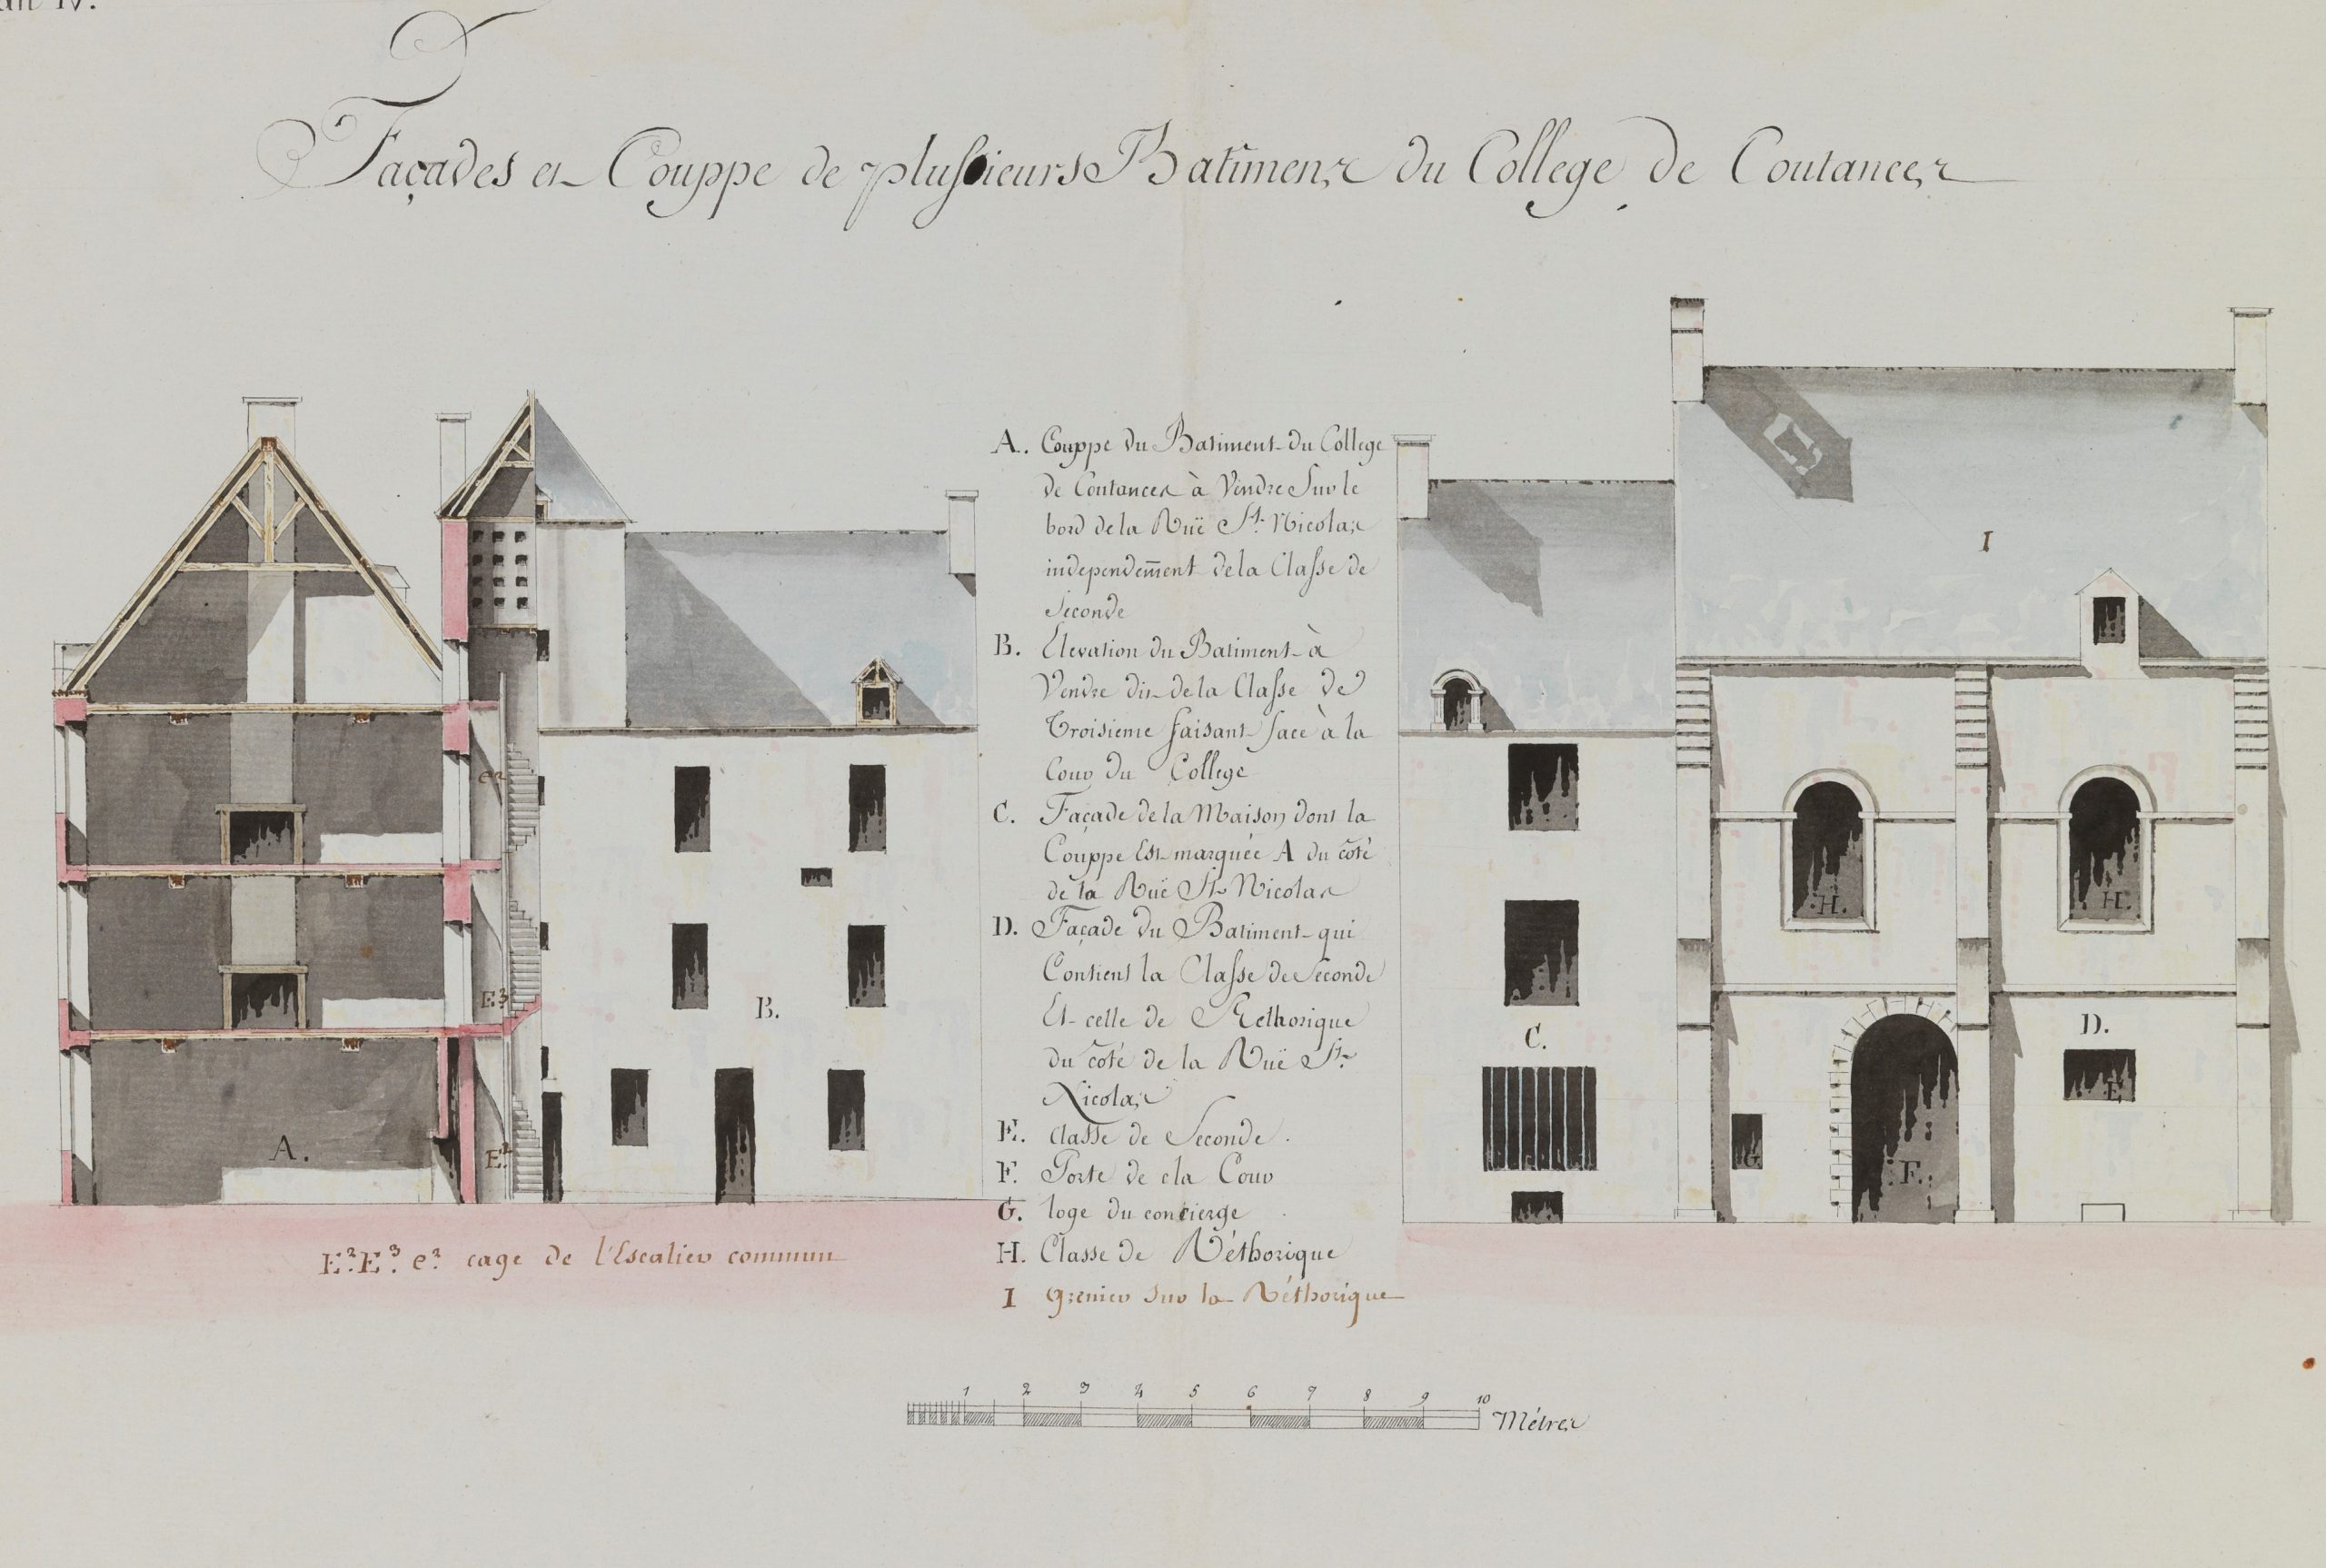 an IV.
Façades et Couppe de plusieurs Batimens du College de Coutances
A. Couppe du Batiment du College
de Coutances à Vendre Sur le
bord de la Ruë St. Nicolas
independem̄ent de la Classe de
Seconde
B. Elevation du Batiment à
Vendre dit de la Classe de
Troisieme faisant face à la
Cour du College
C. Façade de la Maison dont la
Couppe Est marquée A du côté
de la Ruë St Nicolas
D. Façade du Batiment qui
Contient la Classe de Seconde
Et celle de Rethorique
du côté de la Ruë St.
Nicolas
E. Classe de Seconde.
F. Porte de la Cour
G. loge du concierge
H. Classe de Réthorique
I Grenier sur la Réthorique
e2
E3
E2
A.
B.
C.
D.
E
F.
G
H.
H.
I
E2. E3. e2. cage de l'Escalier commun
1 2 3 4 5 6 7 8 9 10 Métres